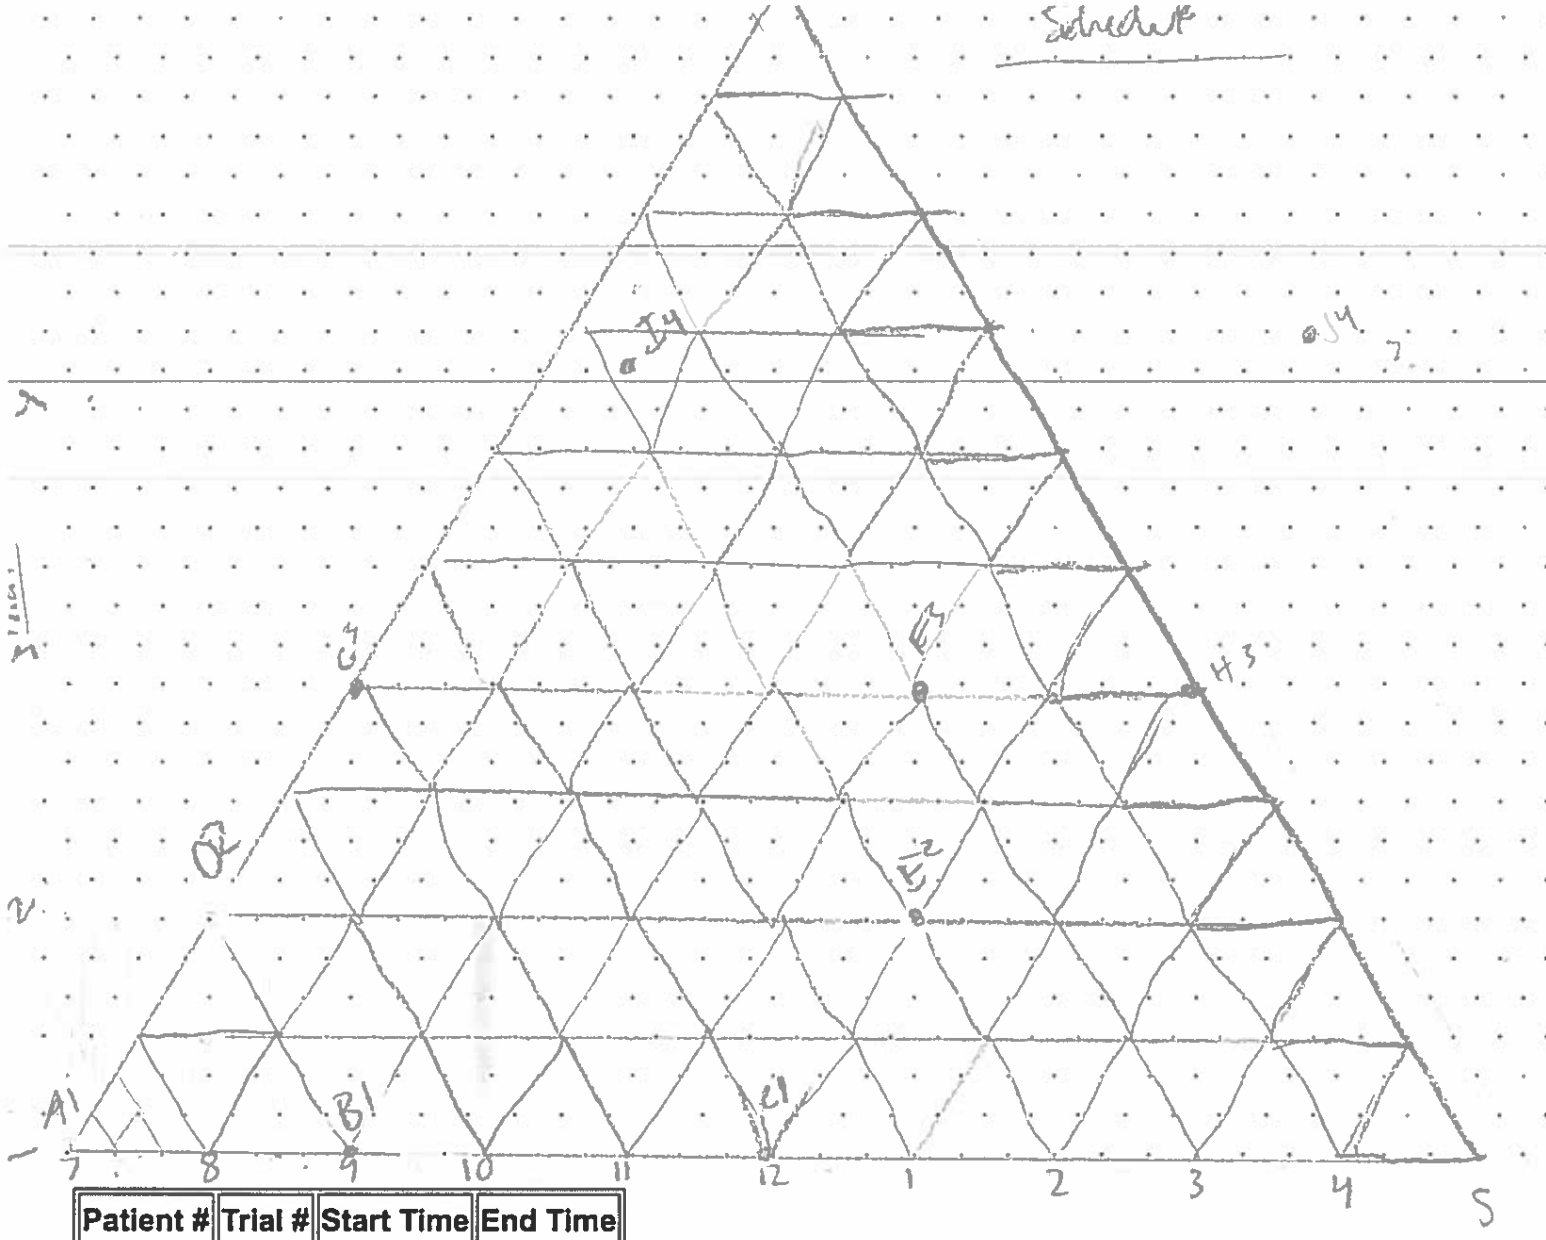 Schedule
J4
I4
7
G3
E3
H3
D2
2
E2
A1
B1
C1
1
7 8 9 10 11 12 1 2 3 4 5
Patient # Trial # Start Time End Time